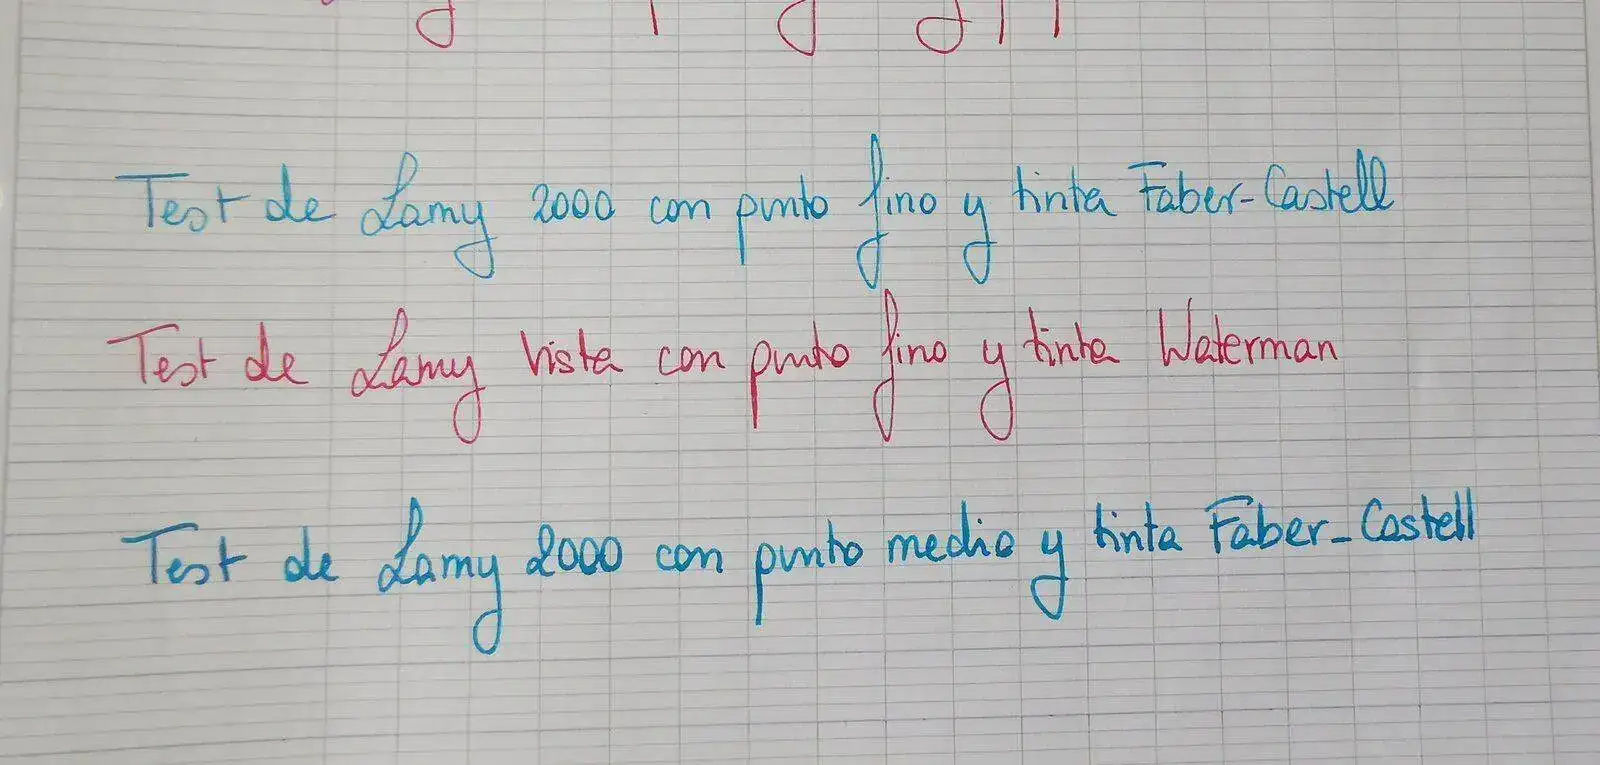 Test de Lamy 2000 con punto fino y tinta Faber-Castell
Test de Lamy Vista con punto fino y tinta Waterman
Test de Lamy 2000 con punto medio y tinta Faber-Castell